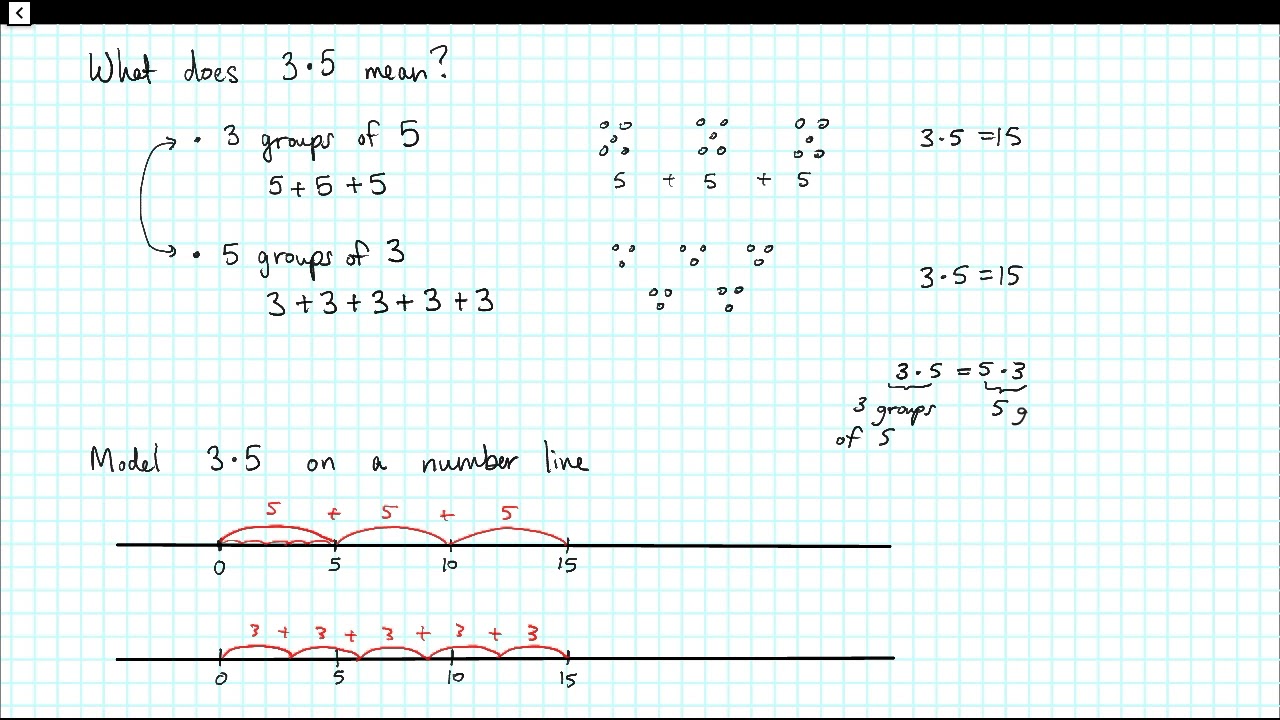 What does 3·5 mean?
• 3 groups of 5
5 + 5 + 5
5 + 5 + 5
3·5 = 15
• 5 groups of 3
3 + 3 + 3 + 3 + 3
3·5 = 15
3·5 = 5·3
3 groups of 5
5 g
Model 3·5 on a number line
5 + 5 + 5
0 5 10 15
3 + 3 + 3 + 3 + 3
0 5 10 15